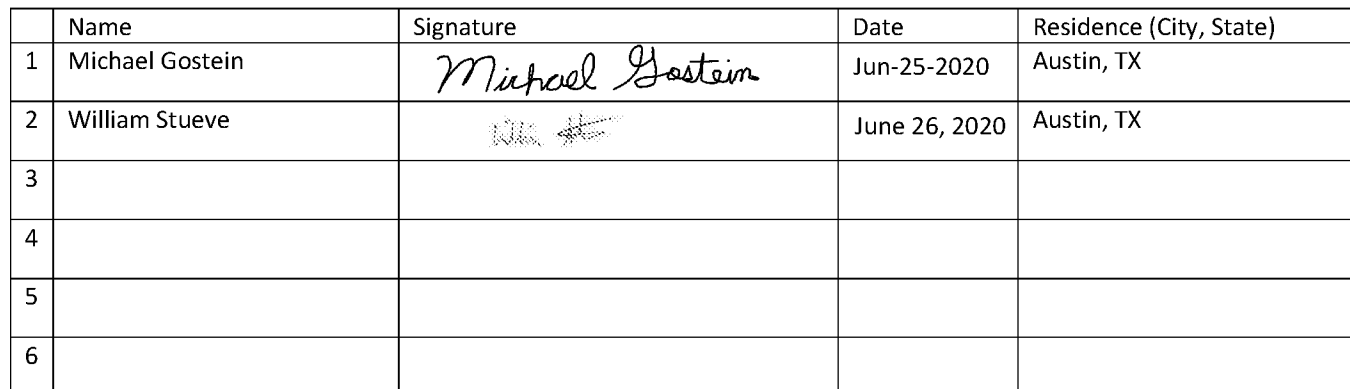 Name Signature Date Residence (City, State)
1 Michael Gostein Michael Gostein Jun-25-2020 Austin, TX
2 William Stueve June 26, 2020 Austin, TX
3
4
5
6